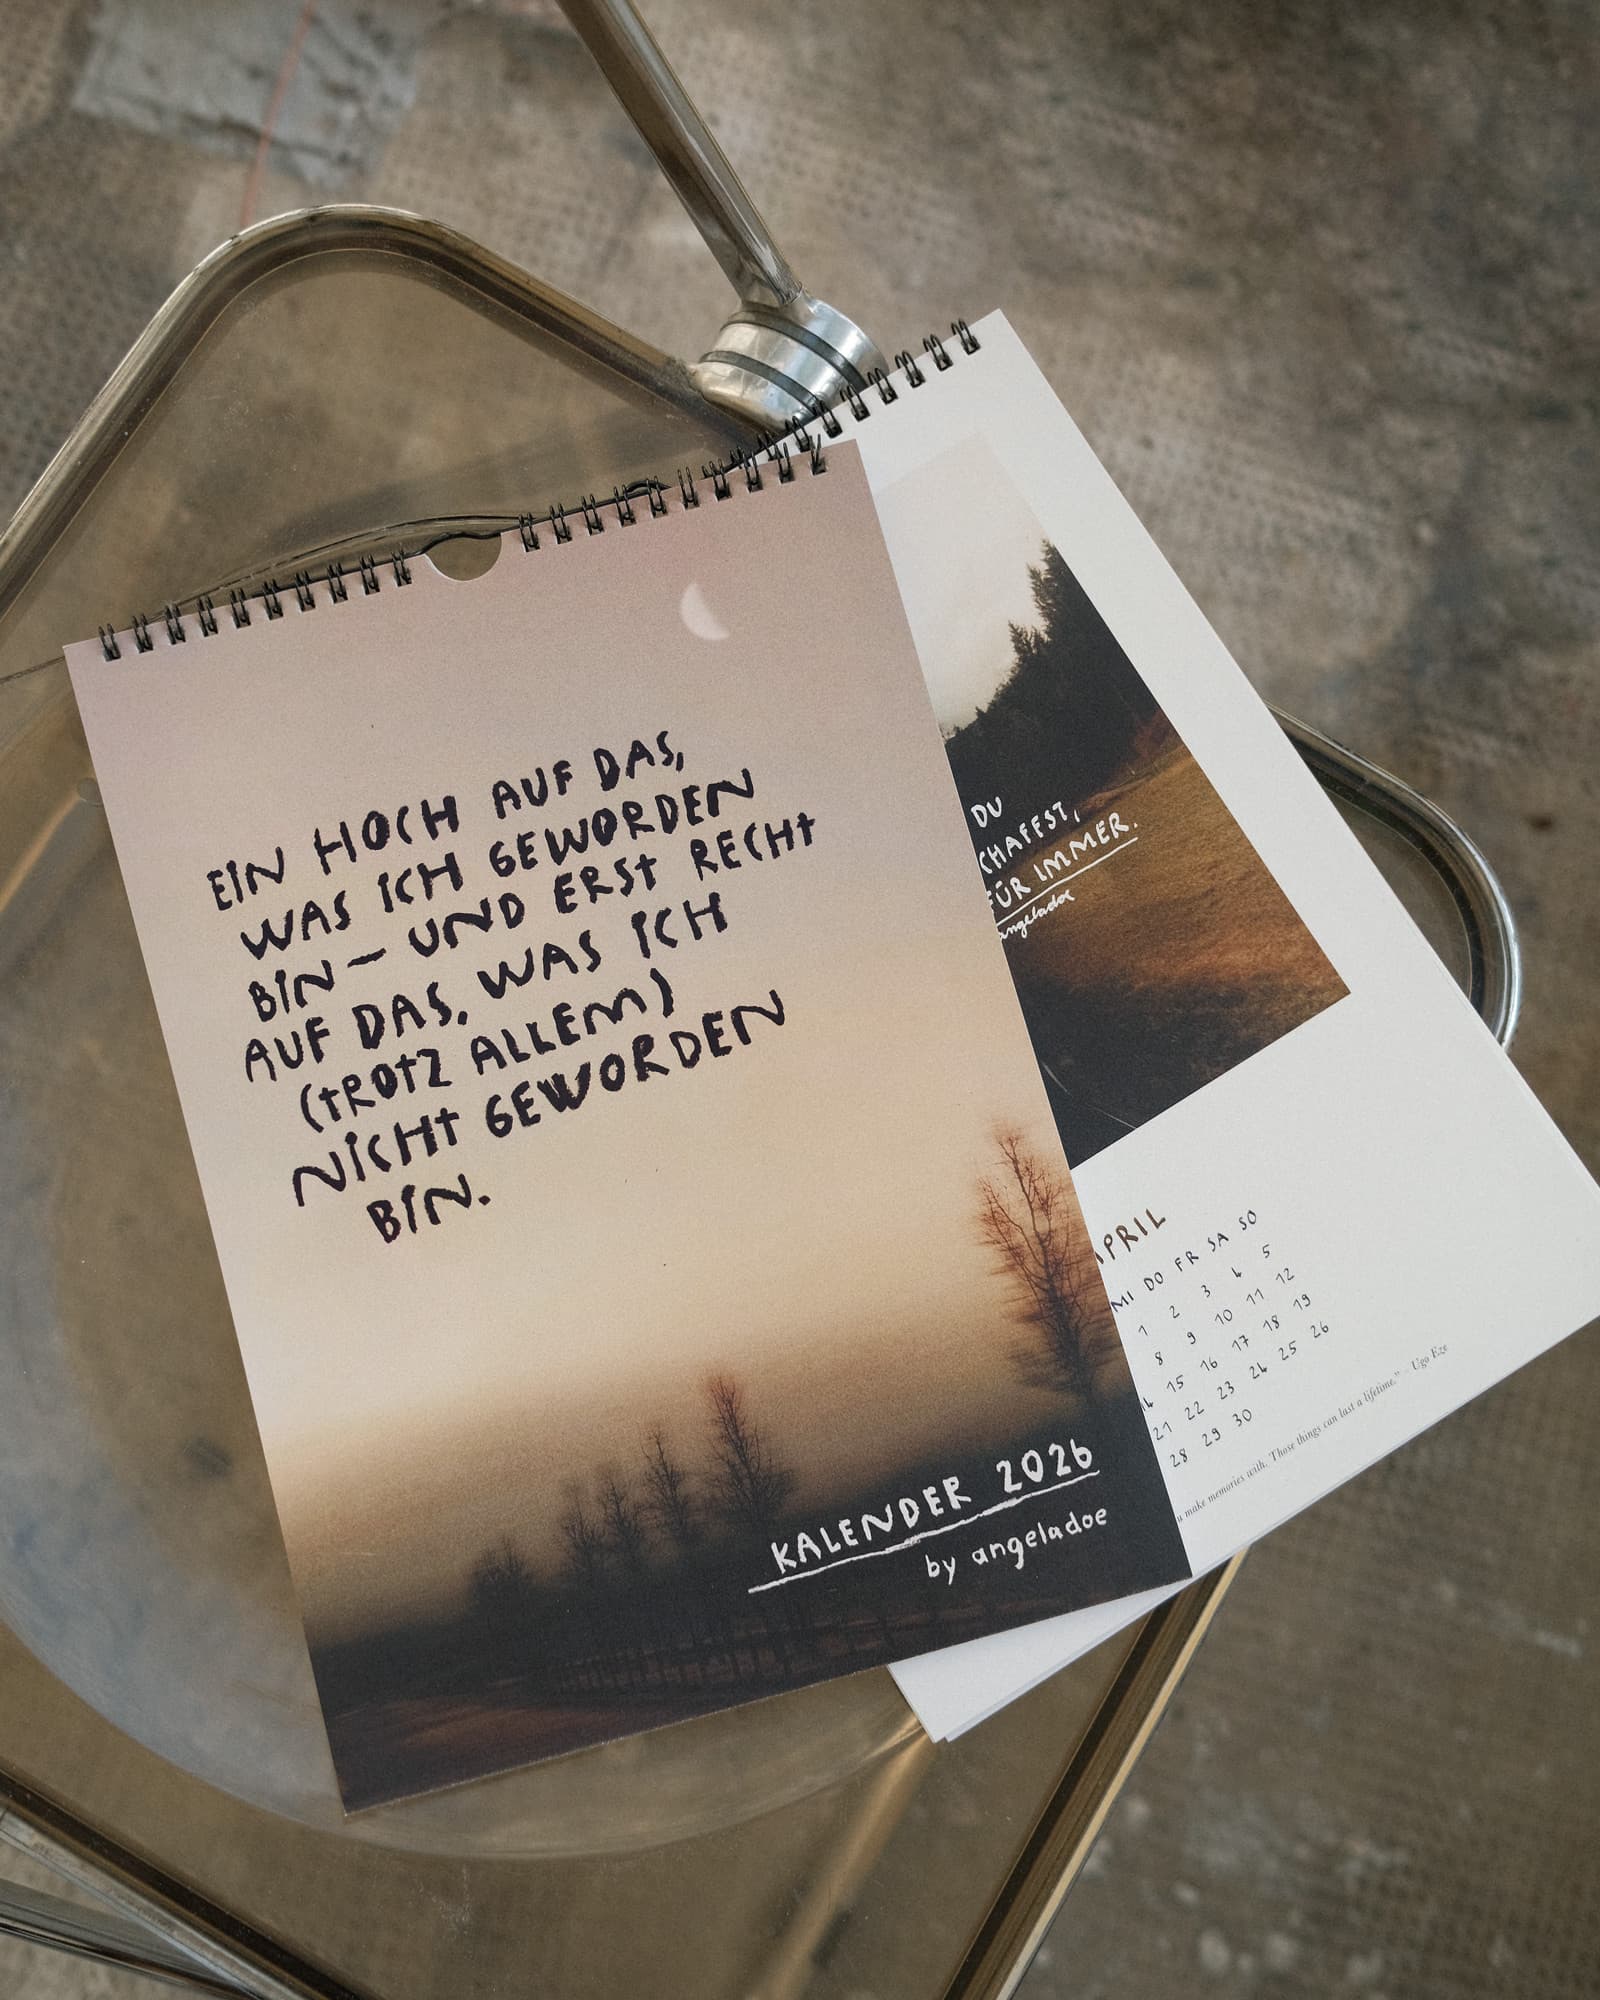 EIN HOCH AUF DAS,
WAS ICH GEWORDEN
BIN – UND ERST RECHT
AUF DAS, WAS ICH
(TROTZ ALLEM)
NICHT GEWORDEN
BIN.
KALENDER 2026
by angeladoe
DU
FÜR IMMER.
angeladoe
APRIL
MI DO FR SA SO
1 2 3 4 5
8 9 10 11 12
14 15 16 17 18 19
21 22 23 24 25 26
28 29 30
make memories with. Those things can last a lifetime.” – Ugo Eze